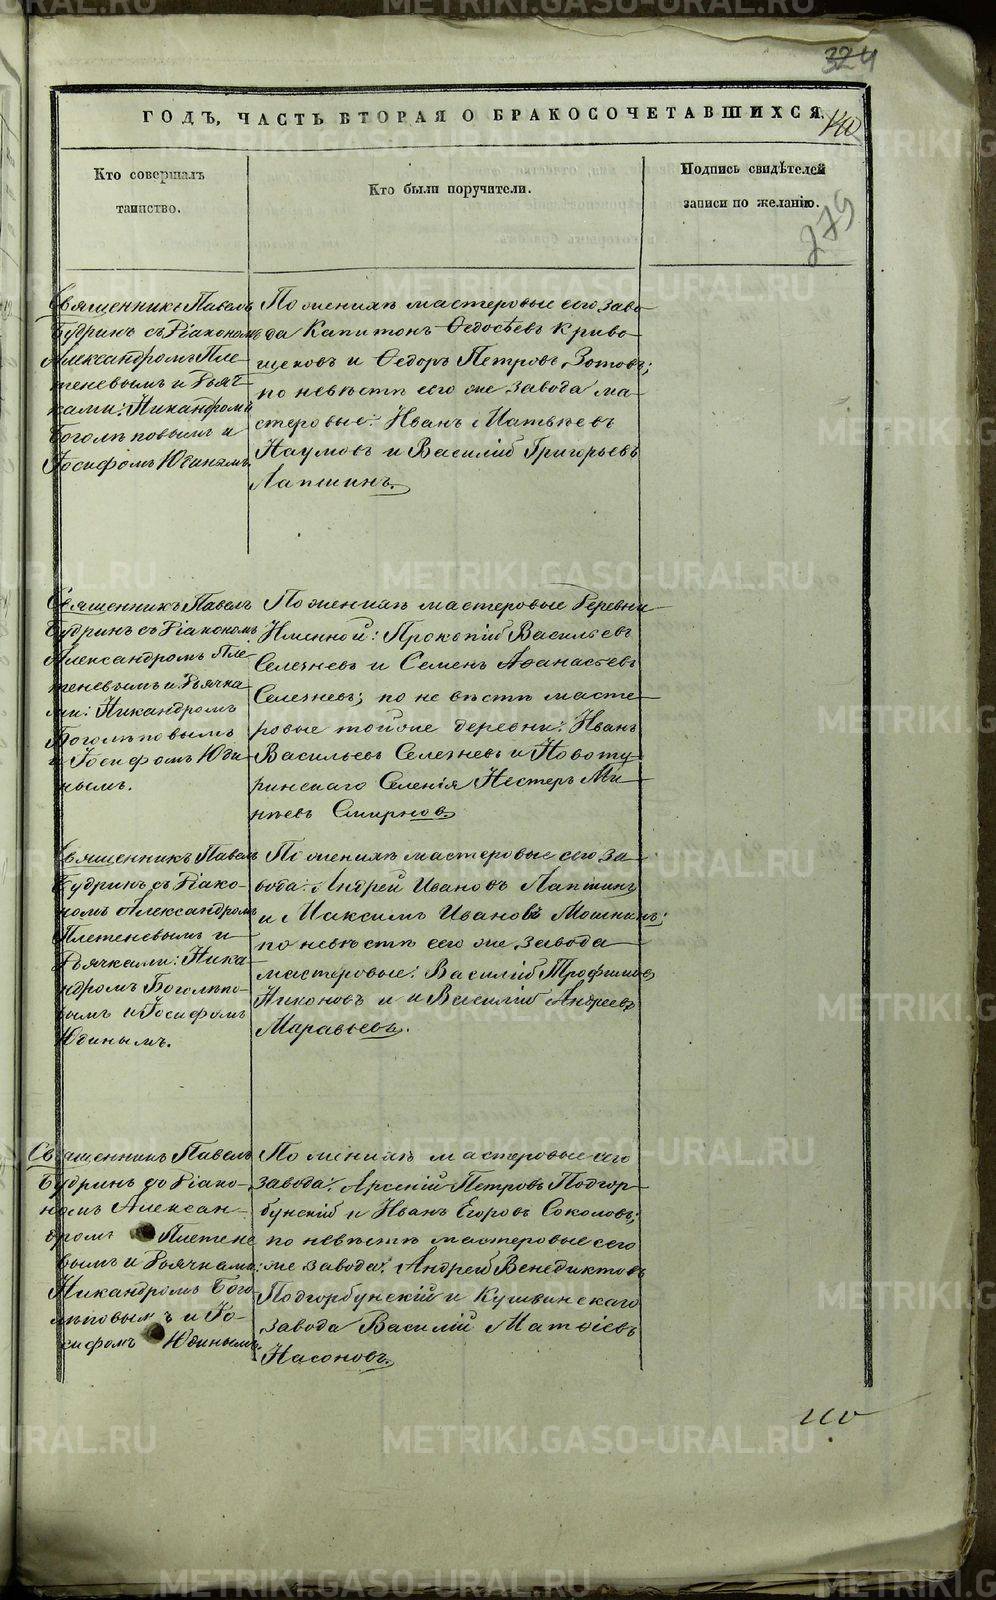 324
ГОДЪ, ЧАСТЬ ВТОРАЯ О БРАКОСОЧЕТАВШИХСЯ.
Кто совершалъ
таинство.
Кто были поручители.
Подпись свидѣтелей
записи по желанію.
279
Священникъ Павелъ
Будринъ съ Діакономъ
Александромъ Пле-
теневымъ и Дьяч-
ками: Никандромъ
Боголѣповымъ и
Іосифомъ Юдинымъ.
По женихѣ мастеровые сего заво-
да Капитонъ Ѳедосѣевъ Криво-
щековъ и Ѳедоръ Петровъ Зотовъ;
по невѣстѣ сего же завода ма-
стеровые: Иванъ Матвѣевъ
Наумовъ и Василій Григорьевъ
Лапшинъ.
Священникъ Павелъ
Будринъ съ Діакономъ
Александромъ Пле-
теневымъ и Дьячка-
ми: Никандромъ
Боголѣповымъ
и Іосифомъ Юди-
нымъ.
По женихѣ мастеровые деревни
Именной: Прокопій Васильевъ
Селезневъ и Семенъ Аѳанасьевъ
Селезневъ; по невѣстѣ масте-
ровые той же деревни: Иванъ
Васильевъ Селезневъ и Новоту-
ринскаго Селенія Нестеръ Ми-
нѣевъ Смирновъ
Священникъ Павелъ
Будринъ съ Діако-
номъ Александромъ
Плетеневымъ и
Дьячками: Ника-
ндромъ Боголѣпо-
вымъ и Іосифомъ
Юдинымъ.
По женихѣ мастеровые сего за-
вода: Андрей Ивановъ Лапшинъ
и Максимъ Ивановъ Мошкинъ;
по невѣстѣ сего же завода
мастеровые: Василій Трофимовъ
Никоновъ и и Василій Андреевъ
Маравьевъ.
Священникъ Павелъ
Будринъ съ Діако-
номъ Алексан-
дромъ Плетене
вымъ и Дьячками:
Никандромъ Бого-
лѣповымъ и Іо-
сифомъ Юдинымъ.
По женихѣ мастеровые сего
завода: Арсеній Петровъ Подгор-
бунскій и Иванъ Егоровъ Соколовъ;
по невѣстѣ мастеровые сего
же завода: Андрей Венедиктовъ
Подгорбунскій и Кушвинскаго
завода Василій Матѳіевъ
Насоновъ.
METRIKI.GASO-URAL.RU